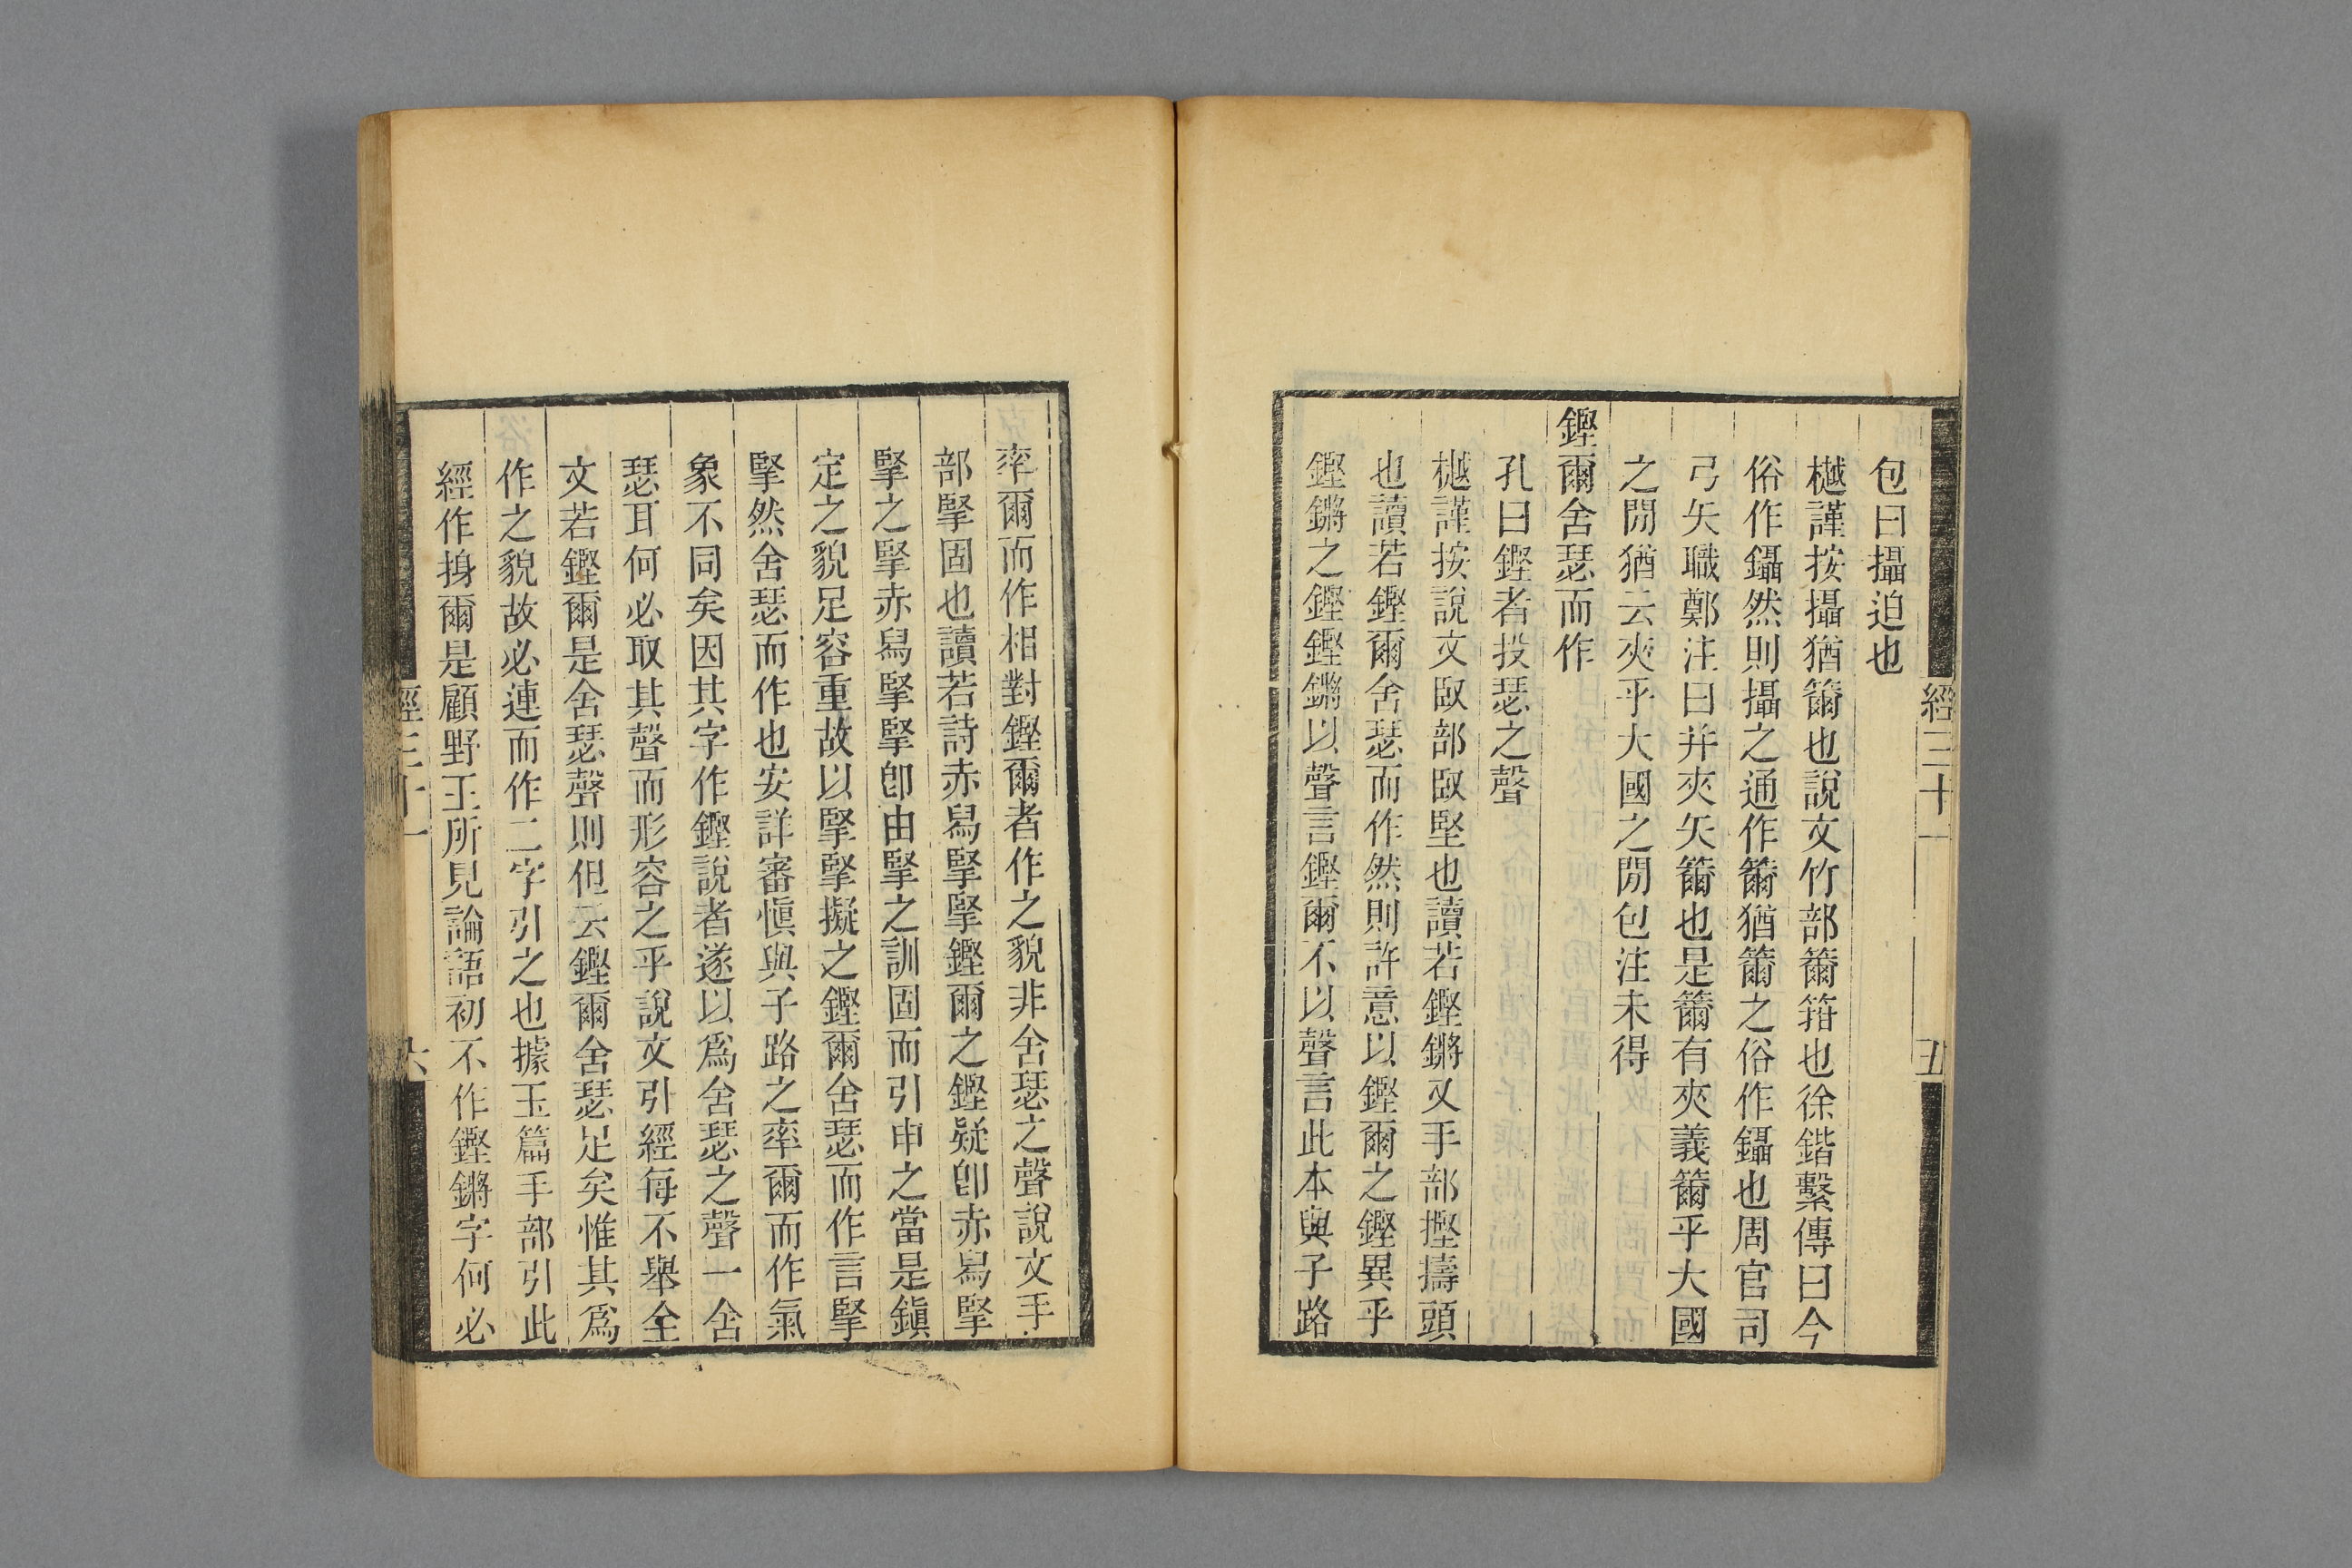 經三十一
五
包曰攝迫也
樾謹按攝猶籋也說文竹部籋箝也徐鍇繫傳曰今
俗作鑷然則攝之通作籋猶籋之俗作鑷也周官司
弓矢職鄭注曰并夾矢籋也是籋有夾義籋乎大國
之閒猶云夾乎大國之閒包注未得
鏗爾舍瑟而作
孔曰鏗者投瑟之聲
樾謹按說文臤部臤堅也讀若鏗鏘又手部摼擣頭
也讀若鏗爾舍瑟而作然則許意以鏗爾之鏗異乎
鏗鏘之鏗鏗鏘以聲言鏗爾不以聲言此本與子路
率爾而作相對鏗爾者作之貌非舍瑟之聲說文手
部掔固也讀若詩赤舄掔掔鏗爾之鏗疑卽赤舄掔
掔之掔赤舄掔掔卽由掔之訓固而引申之當是鎭
定之貌足容重故以掔掔擬之鏗爾舍瑟而作言掔
掔然舍瑟而作也安詳審愼與子路之率爾而作氣
象不同矣因其字作鏗說者遂以爲舍瑟之聲一舍
瑟耳何必取其聲而形容之乎說文引經每不舉全
文若鏗爾是舍瑟聲則但云鏗爾舍瑟足矣惟其爲
作之貌故必連而作二字引之也據玉篇手部引此
經作𢴤爾是顧野王所見論語初不作鏗鏘字何必
經三十一
六